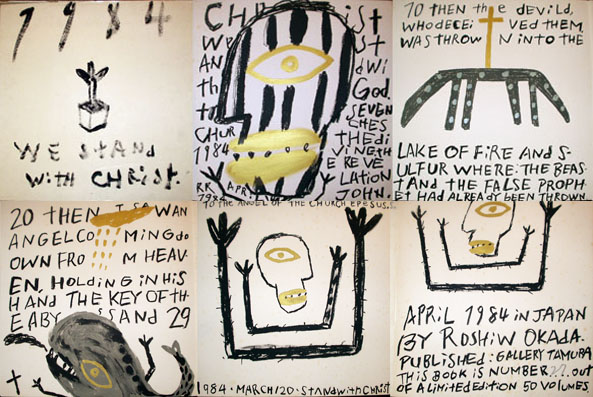 1984
WE STAND
WITH CHRIST.
CHRIST
WE ST
AND Wi
th God.
SEVEN
CHUR CHES
1984 THE di
VINE
E REVE
RR APR LATION
1984 JOHN.
TO THEN the DEVILD,
WHO DECEI VED THEM,
WAS THROW N INTO THE
LAKE OF FIRE AND S-
ULFUR WHERE: THE BEAS-
T AND THE FALSE PROPH-
ET HAD ALREADY BEEN THROWN.
20 THEN I SAW AN
ANGEL CO MING do
OWN FRO M HEAV-
EN, HOLDING IN HIS
HAND THE KEY OF TH-
E ABY SS AND 29
TO THE ANGEL OF THE CHURCH EPESUS.
1984 · MARCH/20 · STAND WITH CHRIST
APRIL 1984 IN JAPAN
BY ROSHIW OKADA.
PUBLISHED: GALLERY TAMURA
THIS BOOK IS NUMBER out
OF A LIMITED EDITION 50 VOLUMES